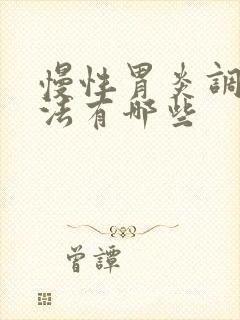 慢性胃炎調
法有哪些
曾譚